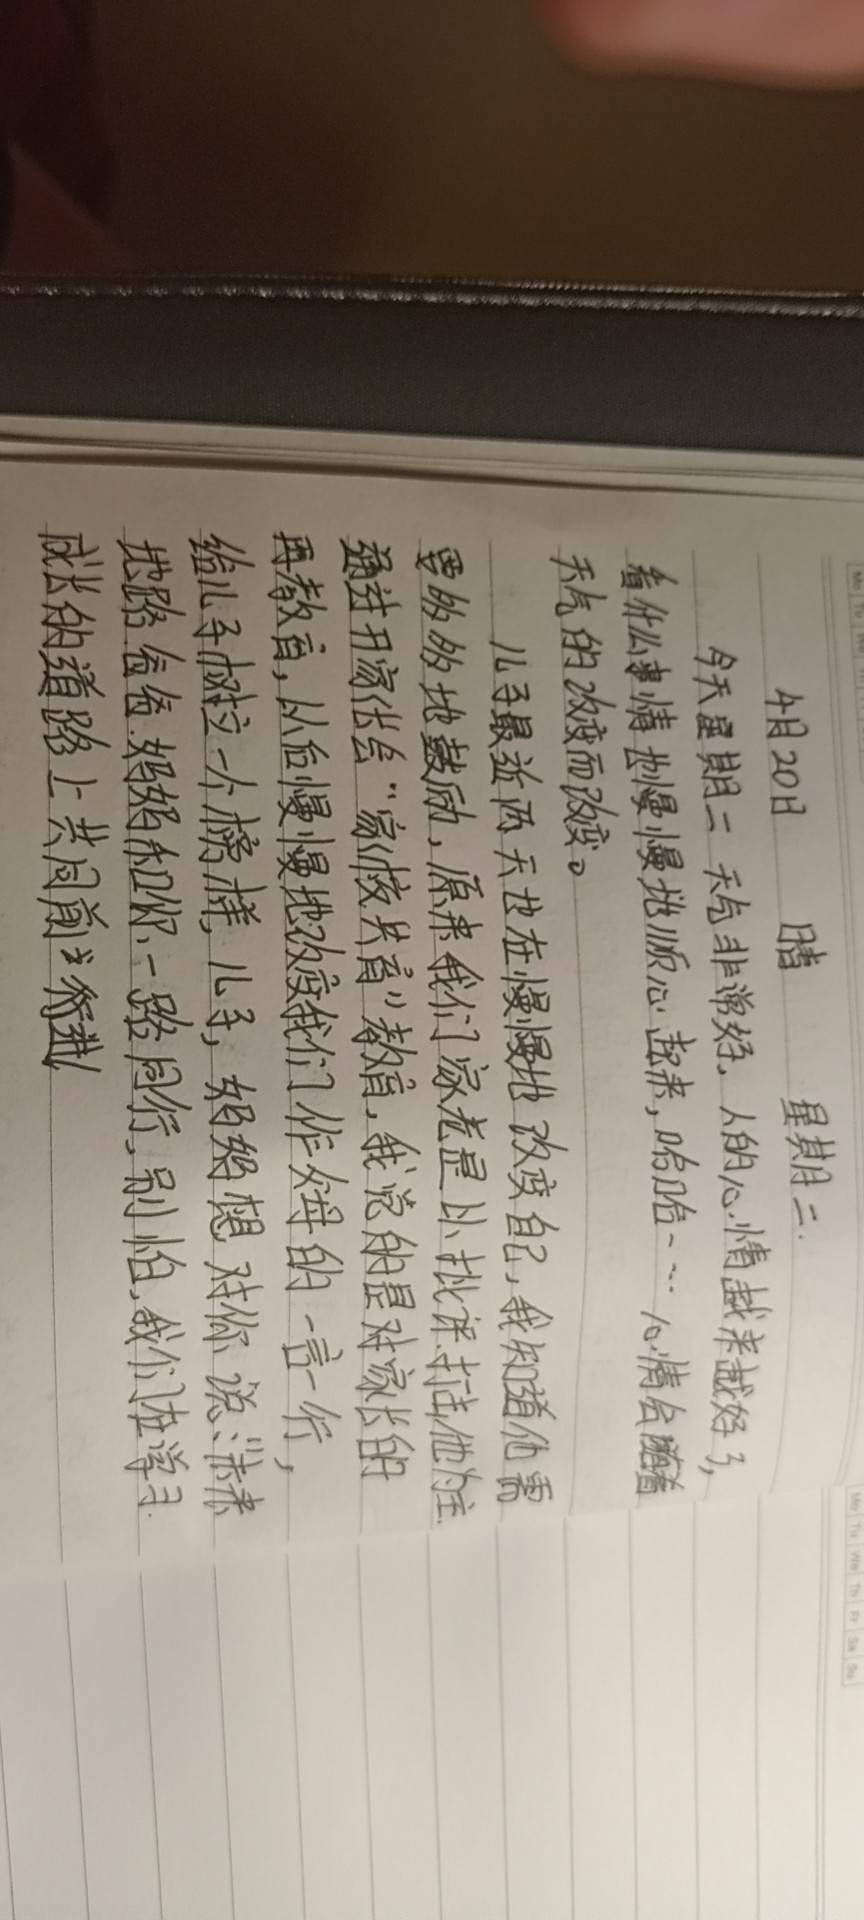 4月20日 晴 星期二.
今天星期二 天气非常好, 人的心情越来越好了,
看什么事情也慢慢地顺心起来, 哈哈~… 心情会随着
天气的改变而改变。
儿子最近两天也在慢慢地改变自己, 我知道他需
要多多地鼓励, 原来我们家老是以批评.打击他为主.
通过开家长会“家校共育”教育, 我说的是对家长的
再教育, 从后慢慢地改变我们作父母的一言一行,
给儿子树立一个榜样, 儿子, 妈妈想对你说: 未来
地路爸爸.妈妈和你、一路同行, 别怕, 我们在学习.
成长的道路上共同前行
Mo Tu We Th Fr Sa Su